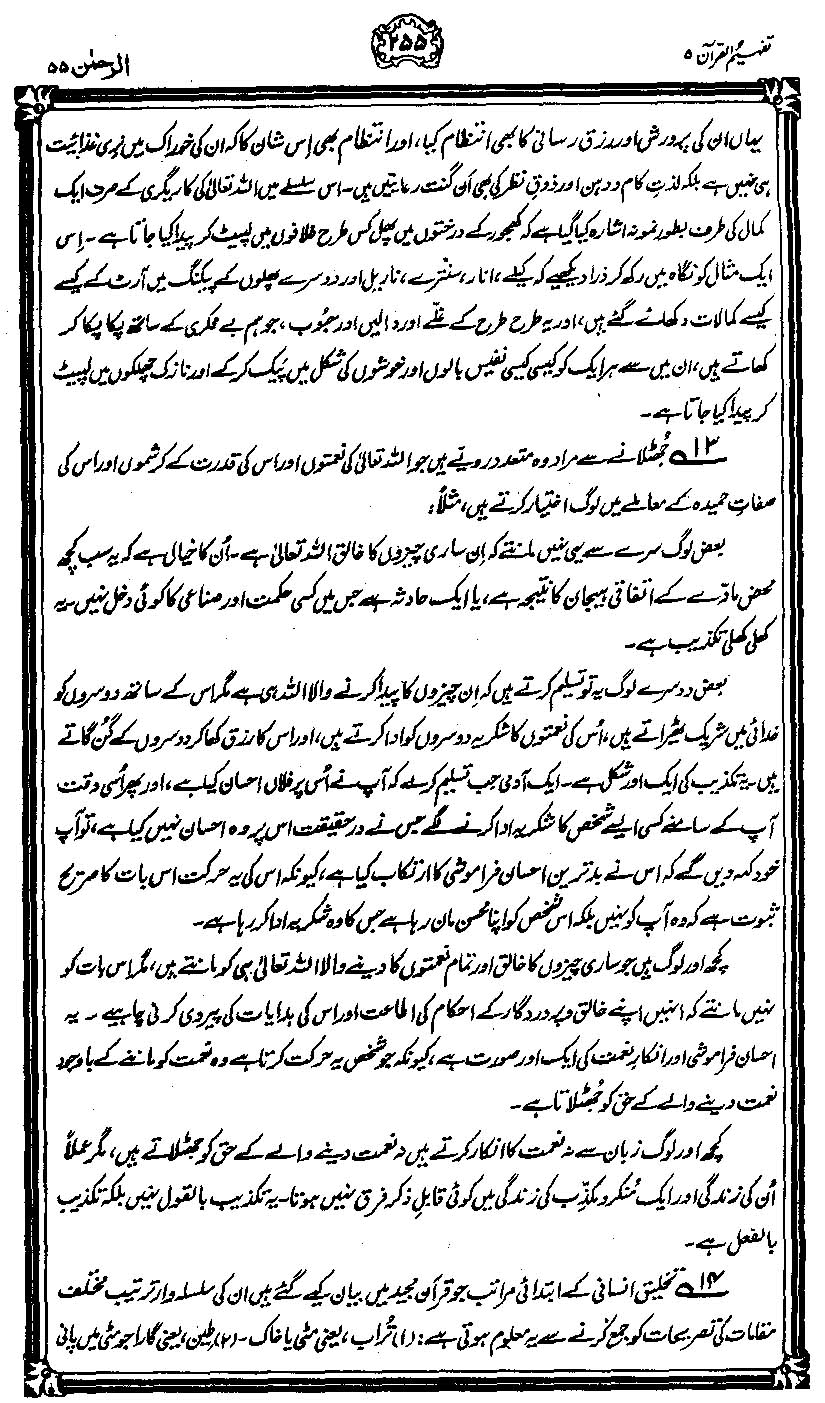 تفہیم القرآن ۵
۲۵۵
الرحمٰن ۵۵
یہاں ان کی پرورش اور رزق رسانی کا بھی انتظام کیا، اور انتظام بھی اِس شان کا کہ ان کی خوراک میں نِری غذائیت
ہی نہیں ہے بلکہ لذتِ کام و دہن اور ذوقِ نظر کی بھی اَن گنت رعایتیں ہیں۔ اس سلسلے میں اللہ تعالیٰ کی کاریگری کے صرف ایک
کمال کی طرف بطور نمونہ اشارہ کیا گیا ہے کہ کھجور کے درختوں میں پھل کس طرح غلافوں میں لپیٹ کر پیدا کیا جاتا ہے۔ اِس
ایک مثال کو نگاہ میں رکھ کر ذرا دیکھیے کہ کیلے، انار، سنترے، ناریل اور دوسرے پھلوں کے پیکنگ میں آرٹ کے کیسے
کیسے کمالات دکھائے گئے ہیں، اور یہ طرح طرح کے غلّے اور دالیں اور حبُوب، جو ہم بے فکری کے ساتھ پکا پکا کر
کھاتے ہیں، ان میں سے ہر ایک کو کیسی کیسی نفیس بالوں اور خوشوں کی شکل میں پَیک کر کے اور نازک چھلکوں میں لپیٹ
کر پیدا کیا جاتا ہے۔
۱۳؎ جُھٹلانے سے مراد وہ متعدد رویّے ہیں جو اللہ تعالیٰ کی نعمتوں اور اس کی قدرت کے کرشموں اور اس کی
صفاتِ حمیدہ کے معاملے میں لوگ اختیار کرتے ہیں، مثلاً:
بعض لوگ سرے سے یہی نہیں مانتے کہ اِن ساری چیزوں کا خالق اللہ تعالیٰ ہے۔ اُن کا خیال ہے کہ یہ سب کچھ
محض مادّے کے اتفاقی ہیجان کا نتیجہ ہے، یا ایک حادثہ ہے جس میں کسی حکمت اور صناعی کا کوئی دخل نہیں۔ یہ
کھلی کھلی تکذیب ہے۔
بعض دوسرے لوگ یہ تو تسلیم کرتے ہیں کہ اِن چیزوں کا پیدا کرنے والا اللہ ہی ہے مگر اس کے ساتھ دوسروں کو
خدائی میں شریک ٹھیراتے ہیں، اُس کی نعمتوں کا شکریہ دوسروں کو ادا کرتے ہیں، اور اس کا رزق کھا کر دوسروں کے گُن گاتے
ہیں۔ یہ تکذیب کی ایک اور شکل ہے۔ ایک آدمی جب تسلیم کرے کہ آپ نے اُس پر فلاں احسان کیا ہے، اور پھر اُسی وقت
آپ کے سامنے کسی ایسے شخص کا شکریہ ادا کرنے لگے جس نے درحقیقت اس پر وہ احسان نہیں کیا ہے، تو آپ
خود کہہ دیں گے کہ اس نے بدترین احسان فراموشی کا ارتکاب کیا ہے، کیونکہ اس کی یہ حرکت اس بات کا صریح
ثبوت ہے کہ وہ آپ کو نہیں بلکہ اس شخص کو اپنا محسن مان رہا ہے جس کا وہ شکریہ ادا کر رہا ہے۔
کچھ اور لوگ ہیں جو ساری چیزوں کا خالق اور تمام نعمتوں کا دینے والا اللہ تعالیٰ ہی کو مانتے ہیں، مگر اس بات کو
نہیں مانتے کہ انہیں اپنے خالق و پروردگار کے احکام کی اطاعت اور اس کی ہدایات کی پیروی کرنی چاہیے۔ یہ
احسان فراموشی اور انکارِ نعمت کی ایک اور صورت ہے، کیونکہ جو شخص یہ حرکت کرتا ہے وہ نعمت کو ماننے کے باوجود
نعمت دینے والے کے حق کو جُھٹلاتا ہے۔
کچھ اور لوگ زبان سے نہ نعمت کا انکار کرتے ہیں نہ نعمت دینے والے کے حق کو جھٹلاتے ہیں، مگر عملاً
اُن کی زندگی اور ایک مُنکر و مکذِّب کی زندگی میں کوئی قابلِ ذکر فرق نہیں ہوتا۔ یہ تکذیب بالقول نہیں بلکہ تکذیب
بالفعل ہے۔
۱۴؎ تخلیقِ انسانی کے ابتدائی مراتب جو قرآن مجید میں بیان کیے گئے ہیں ان کی سلسلہ وار ترتیب مختلف
مقامات کی تصریحات کو جمع کرنے سے یہ معلوم ہوتی ہے: (۱) تُراب، یعنی مٹی یا خاک۔ (۲) طِین، یعنی گارا جو مٹی میں پانی